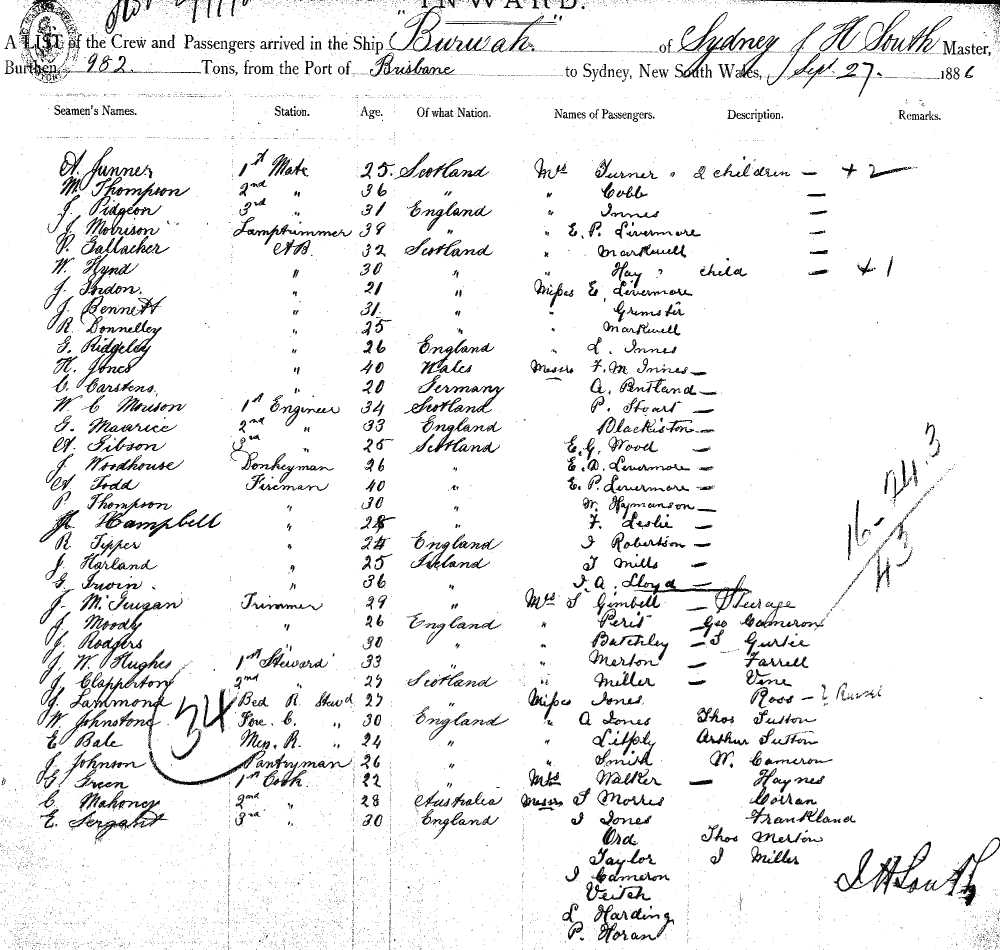 "INWARD."
A LIST of the Crew and Passengers arrived in the Ship Burwah of Sydney J H South Master,
Burthen 982 Tons, from the Port of Brisbane to Sydney, New South Wales, Sept. 27. 1886
Seamen's Names. Station. Age. Of what Nation. Names of Passengers. Description. Remarks.
A. Junner 1st Mate 25 Scotland Mrs Turner " 2 children — + 2
M. Thompson 2nd " 36 " " Cobb —
J. Pidgeon 3rd " 31 England " Innes —
J. Morrison Lamptrimmer 38 " " E. P. Livermore —
P. Gallacher AB. 32 Scotland " Markwell —
W. Hynd " 30 " " Hay " child — + 1
J. " 21 " Misses E. Livermore
J. Bennett " 31 " " Grimster
R. Donnelley " 25 " " Markwell
G. Ridgeley " 26 England " L. Innes
H. Jones " 40 Wales Messrs F. M. Innes —
C. Carstens " 20 Germany A. Pentland —
W. C. Mouson 1st Engineer 34 Scotland P. Stuart —
G. Maurice 2nd " 33 England Blackiston —
A. Gibson 3rd " 25 Scotland E. G. Wood —
J. Woodhouse Donkeyman 26 " E. D. Livermore —
A. Todd Fireman 40 " E. P. Livermore —
P. Thompson " 30 " W. Hymanson —
Campbell " " F. Leslie —
R. Tipper " 24 England J Robertson —
J. Harland " 25 Ireland J Mills —
G. Irwin " 36 " J. A. Lloyd —
J. McGuigan Trimmer 29 " Mrs S Gimbell — Steerage
J. Moody " 26 England " Perit — Geo Cameron
J. Rodgers " 30 " " Batchley — S Gurtie
J. W. Hughes 1st Steward 33 " " Merton — Farrell
J. Clapperton 2nd " 27 Scotland " Miller — Vine
G. Lammond Bed R. Stewd 27 " Misses Jones Ross —
W. Johnstone Fore C. " 30 England " A Jones Thos Sutton
E Bale Mess. R. " 24 " " Arthur Sutton
J. Johnson Pantryman 26 " " Smith W. Cameron
G. Green 1st Cook 22 " Mrs Walker — Haynes
C. Mahoney 2nd " 28 Australia Messrs S Morris Corran
E. Sergant 3rd " 30 England J Jones Frankland
Ord Thos Merton
Taylor J Miller
J Cameron
Veitch
L Harding
P. Horan
34
16 - 24.3
43
J H South